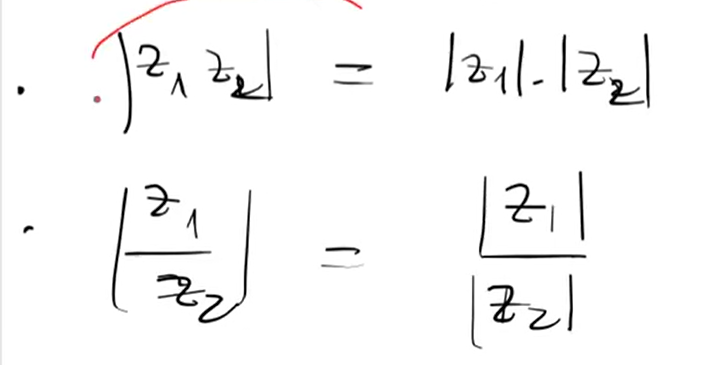 · |z₁ z₂| = |z₁|.|z₂|
· |z₁/z₂| = |z₁|/|z₂|